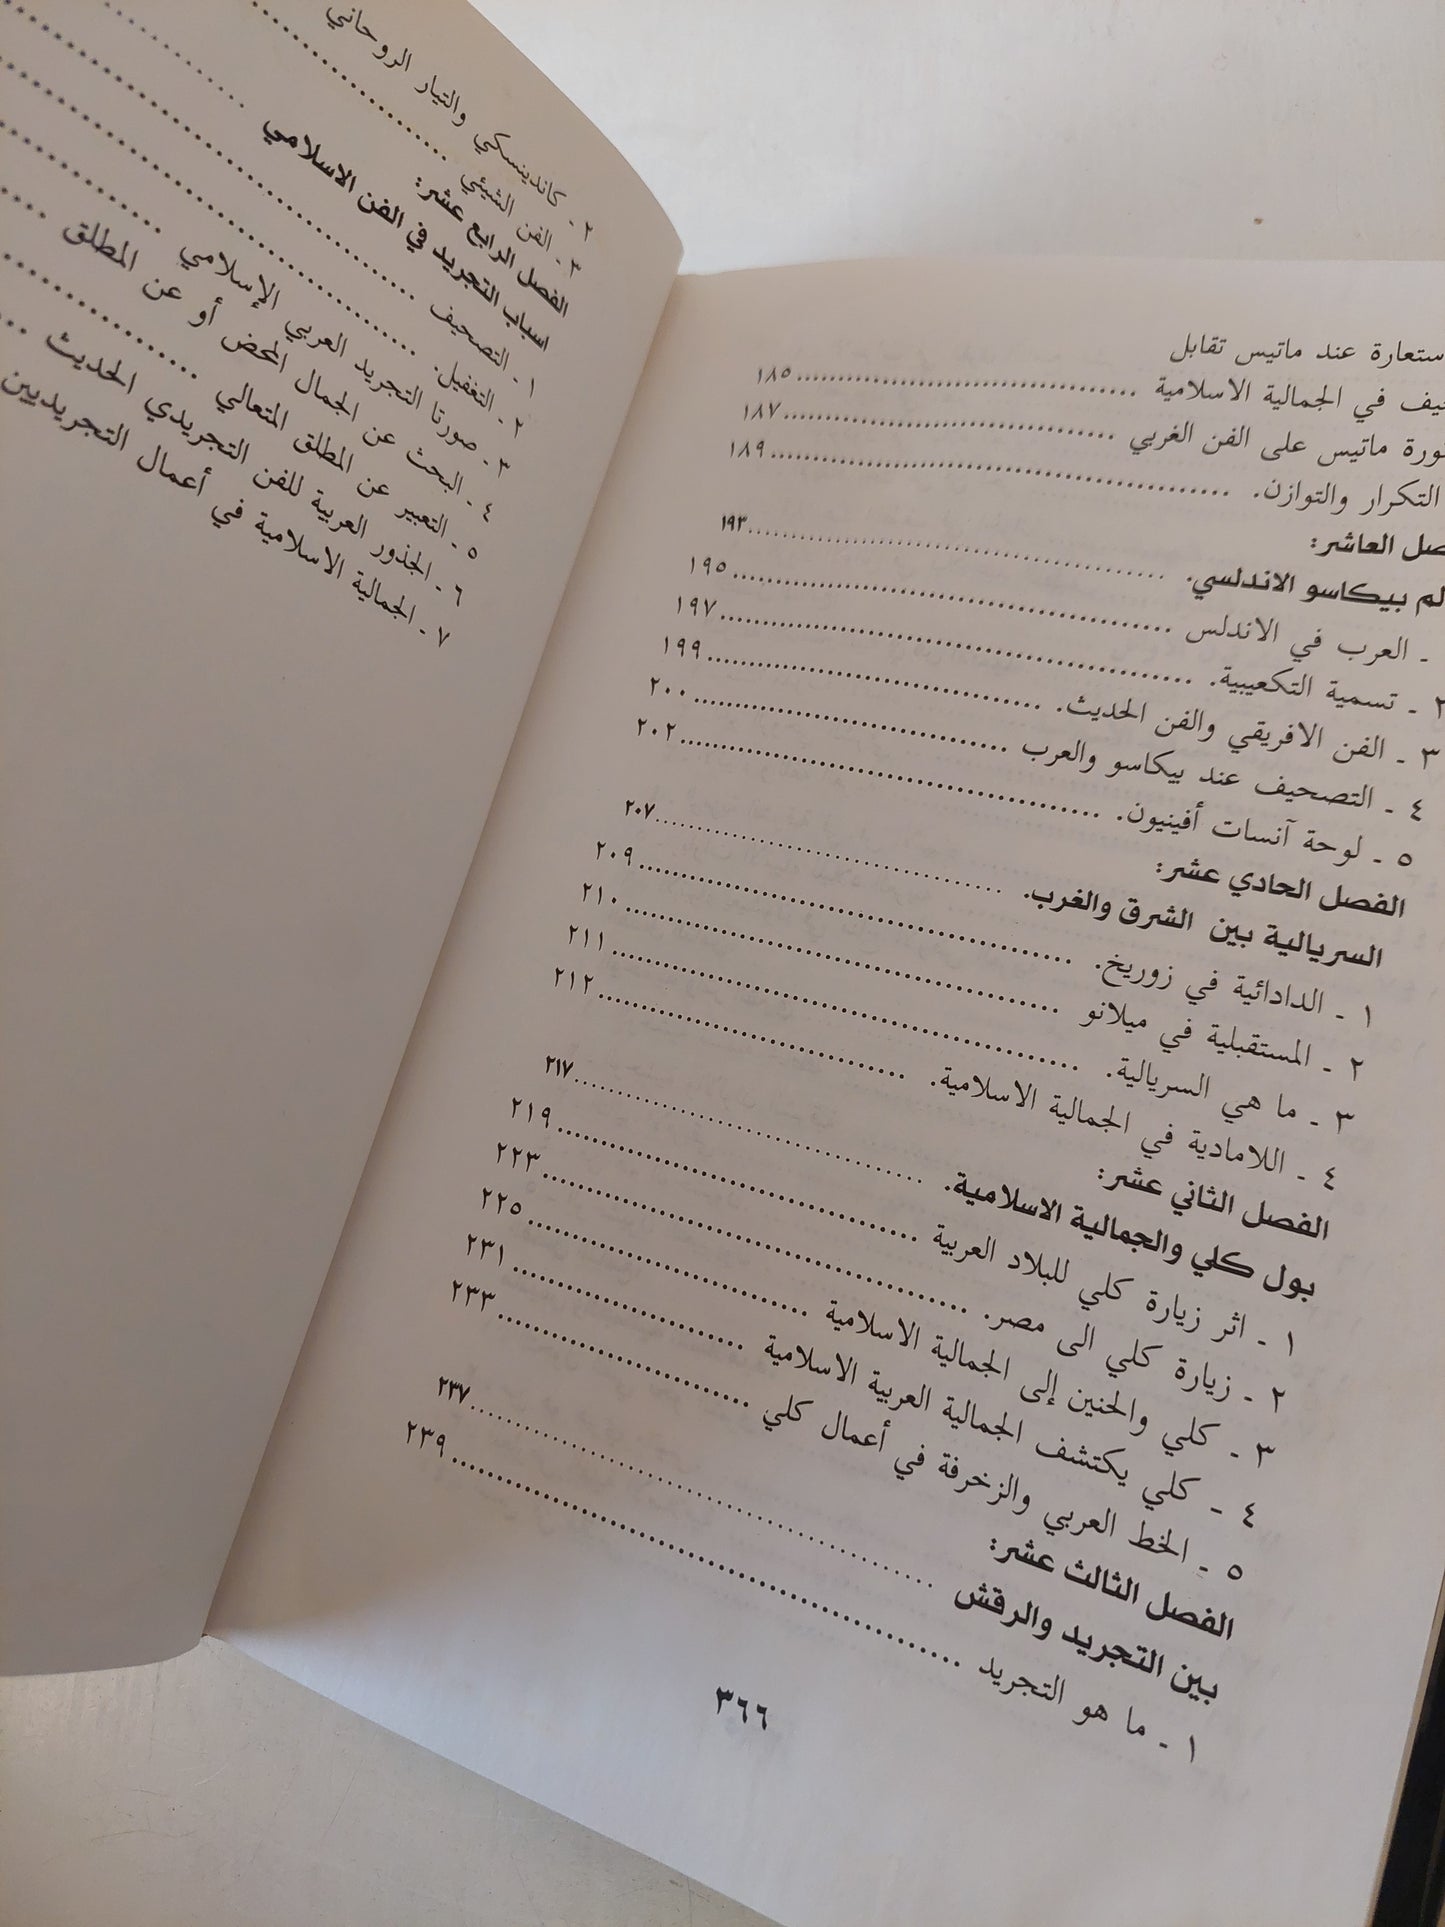 ستعارة عند ماتيس تقابل
يف في الجمالية الاسلامية ..... ١٨٥
ورة ماتيس على الفن الغربي ..... ١٨٧
التكرار والتوازن. ..... ١٨٩
صل العاشر:
لم بيكاسو الاندلسي. ..... ١٩٣
- العرب في الاندلس ..... ١٩٥
٢ - تسمية التكعيبية. ..... ١٩٧
٣ - الفن الافريقي والفن الحديث. ..... ١٩٩
٤ - التصحيف عند بيكاسو والعرب ..... ٢٠٠
٥ - لوحة آنسات أفينيون. ..... ٢٠٢
الفصل الحادي عشر:
السريالية بين الشرق والغرب. ..... ٢٠٧
١ - الدادائية في زوريخ. ..... ٢٠٩
٢ - المستقبلية في ميلانو ..... ٢١٠
٣ - ما هي السريالية. ..... ٢١١
٤ - اللامادية في الجمالية الاسلامية. ..... ٢١٢
الفصل الثاني عشر:
بول كلي والجمالية الاسلامية. ..... ٢١٧
١ - اثر زيارة كلي للبلاد العربية ..... ٢١٩
٢ - زيارة كلي الى مصر. ..... ٢٢٣
٣ - كلي والحنين إلى الجمالية الاسلامية ..... ٢٢٥
٤ - كلي يكتشف الجمالية العربية الاسلامية ..... ٢٣١
٥ - الخط العربي والزخرفة في أعمال كلي ..... ٢٣٣
الفصل الثالث عشر:
بين التجريد والرقش ..... ٢٣٧
١ - ما هو التجريد ..... ٢٣٩
٣٦٦
٢ - كاندينسكي والتيار الروحاني
٣ - الفن الشيئي .....
الفصل الرابع عشر:
اسباب التجريد في الفن الاسلامي .....
١ - التصحيف .....
٢ - التغفيل. .....
٣ - صورتا التجريد العربي الإسلامي .....
٤ - البحث عن الجمال المحض أو عن المطلق .....
٥ - التعبير عن المطلق المتعالي .....
٦ - الجذور العربية للفن التجريدي الحديث .....
٧ - الجمالية الاسلامية في أعمال التجريديين